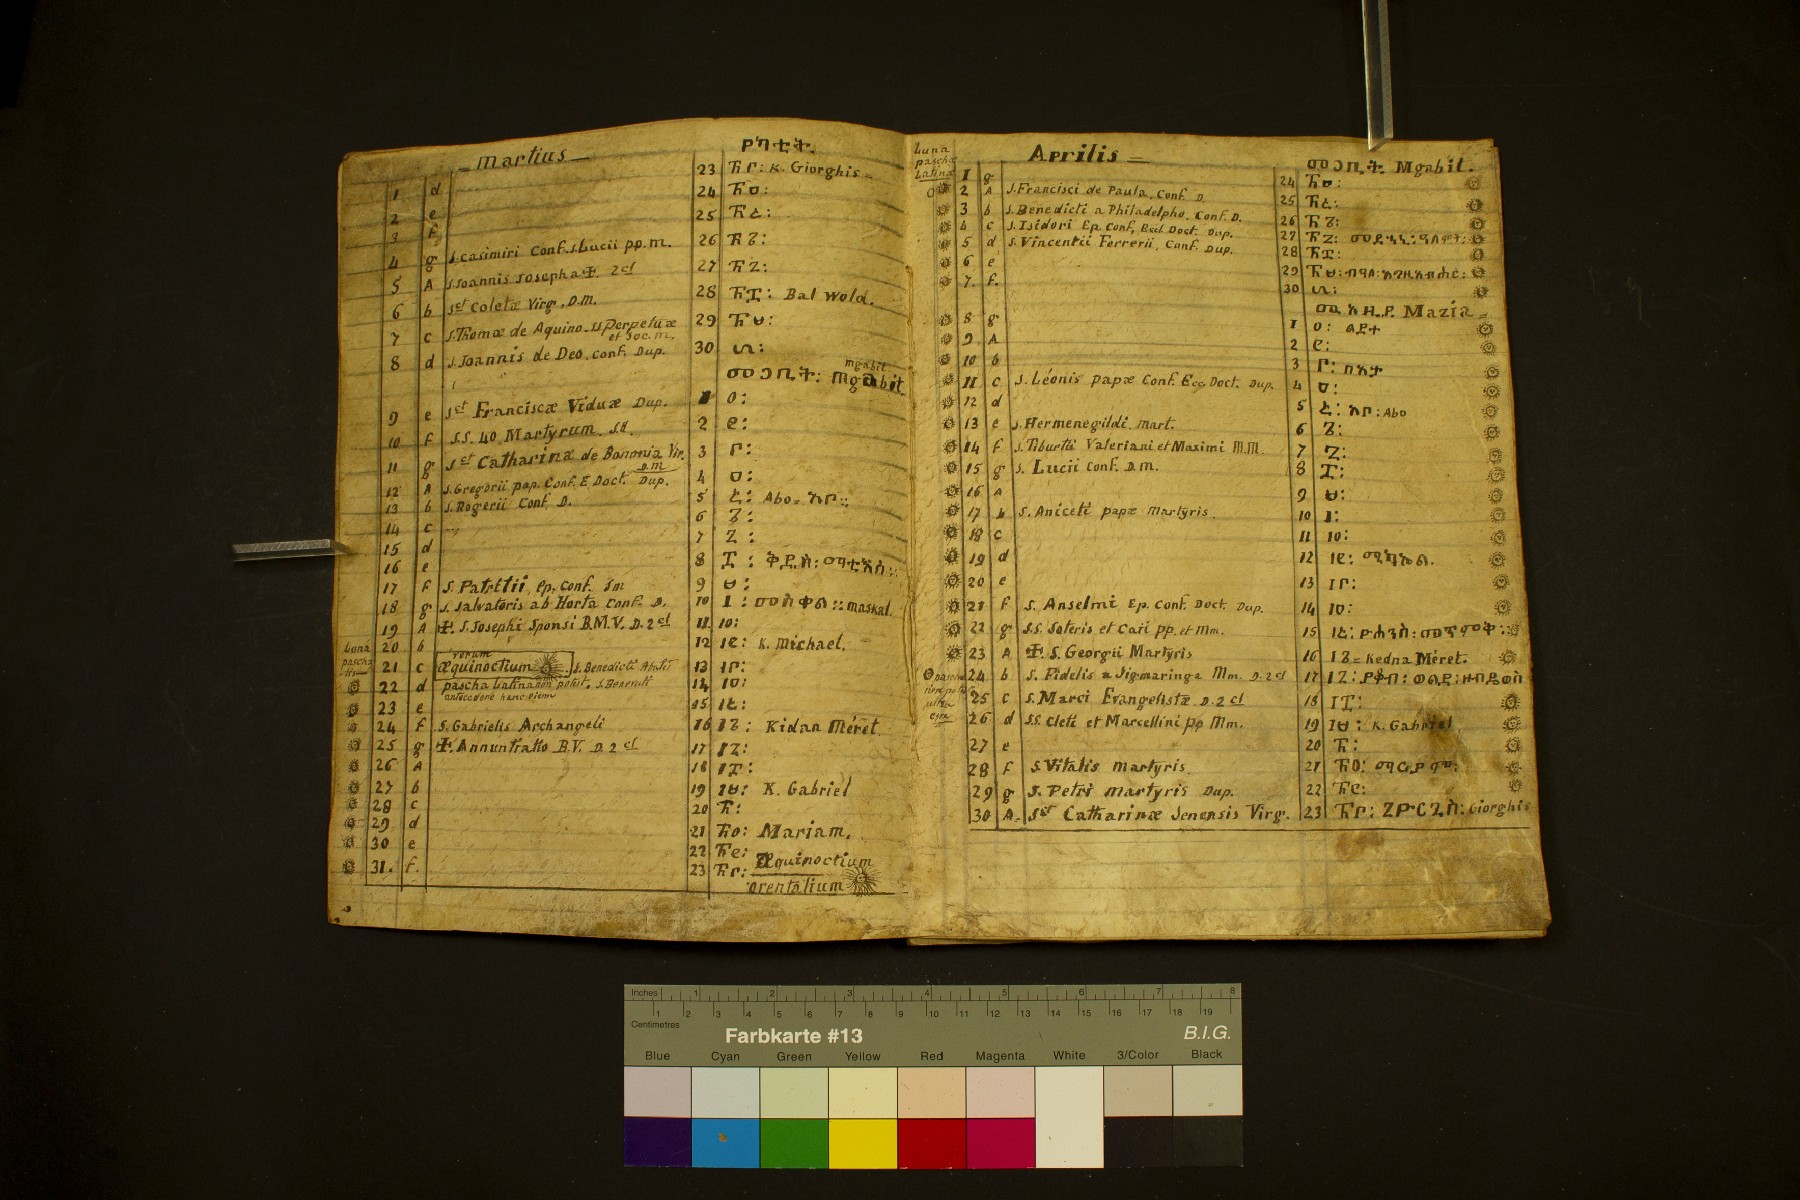 Martius
የካቲት.
1 d 23 ፳፫: K. Giorghis
2 e 24 ፳፬:
3 f 25 ፳፭:
4 g S. Casimiri Conf. S. Lucii pp. m. 26 ፳፮:
5 A S. Joannis Josepha ✠. 2 cl 27 ፳፯:
6 b Sct Coletæ Virg. D.m. 28 ፳፰: Bal wold.
7 c S. Thomæ de Aquino. SS Perpetuæ et Soc. m. 29 ፳፱:
8 d S. Joannis de Deo. conf. Dup. 30 ፴:
መጋቢት: Mgabit
mgabit
9 e Sct Franciscæ Viduæ Dup. 1 ፩:
10 f S.S. 40 Martyrum. Sd. 2 ፪:
11 g Sct Catharinæ de Bononia Vir. D.m 3 ፫:
12 A S. Gregorii pap. Conf. E Doct. Dup. 4 ፬:
13 b S. Rogerii Conf. D. 5 ፭: Abo = አቦ::
14 c 6 ፮:
15 d 7 ፯:
16 e 8 ፰: ቅዱስ: ማቲዎስ::
17 f S. Patritii Ep. Conf. Sm 9 ፱:
18 g S. Salvatoris ab Horta Conf. D. 10 ፲: መስቀል:: maskal.
19 A ✠. S. Josephi Sponsi B.M.V. D. 2 cl 11 ፲፩:
Luna pascha
20 b 12 ፲፪: K. Michael.
21 c verum æquinoctium S. Benedicti Abatis 13 ፲፫:
22 d pascha Latina non potest antecedere hanc diem 14 ፲፬:
23 e 15 ፲፭:
24 f S. Gabrielis Archangeli 16 ፲፮: Kidan Méret.
25 g ✠. Annuntiatio B.V. D. 2 cl 17 ፲፯:
26 A 18 ፲፰:
27 b 19 ፲፱: K. Gabriel
28 c 20 ፳:
29 d 21 ፳፩: Mariam.
30 e 22 ፳፪: Æquinoctium
31. f. 23 ፳፫: orentalium
Luna paschæ Latinæ
Aprilis
መጋቢት Mgabit.
1 g 24 ፳፬:
2 A S. Francisci de Paula. Conf. D. 25 ፳፭:
3 b S. Benedicti a Philadelpho. Conf. D. 26 ፳፮:
4 c S. Isidori Ep. Conf. Eccl. Doct. Dup. 27 ፳፯: መድኃኔ: ዓለም:
5 d S. Vincentii Ferrerii, Conf. Dup. 28 ፳፰:
6 e 29 ፳፱: በዓለ: እግዚአብሔር:
7. f. 30 ፴:
ሚአዚያ Mazia
8 g 1 ፩: ልደታ
9 A 2 ፪:
10 b 3 ፫: በአታ
11 c S. Léonis papæ Conf. Ecc. Doct. Dup. 4 ፬:
12 d 5 ፭: አቦ: Abo
13 e S. Hermenegildi. mart. 6 ፮:
14 f S. Tiburtii Valeriani et Maximi M.M. 7 ፯:
15 g S. Lucii Conf. D.m. 8 ፰:
16 A 9 ፱:
17 b S. Aniceti papæ Martyris. 10 ፲:
18 c 11 ፲፩:
19 d 12 ፲፪: ሚካኤል.
20 e 13 ፲፫:
21 f S. Anselmi Ep. Conf. Doct. Dup. 14 ፲፬:
22 g S.S. Soteris et Caii pp. et Mm. 15 ፲፭: ዮሐንስ: መጥምቅ:
23 A ✠. S. Georgii Martyris 16 ፲፮ = Kedna Méret.
24 b S. Fidelis a Sigmaringa Mm. D. 2 cl 17 ፲፯: ያቆብ: ወልደ: ዘብዴዎስ
25 c S. Marci Evangelistæ D. 2 cl 18 ፲፰:
26 d S.S. Cleti et Marcellini pp Mm. 19 ፲፱: K. Gabriel.
27 e 20 ፳:
28 f S. Vitalis Martyris. 21 ፳፩: ማርያም:
29 g S. Petri Martyris Dup. 22 ፳፪:
30 A. Sct Catharinæ Senensis Virg. 23 ፳፫: ጊዮርጊስ: Giorghis
Inches 1 2 3 4 5 6 7 8
Centimetres 1 2 3 4 5 6 7 8 9 10 11 12 13 14 15 16 17 18 19
Farbkarte #13 B.I.G.
Blue Cyan Green Yellow Red Magenta White 3/Color Black